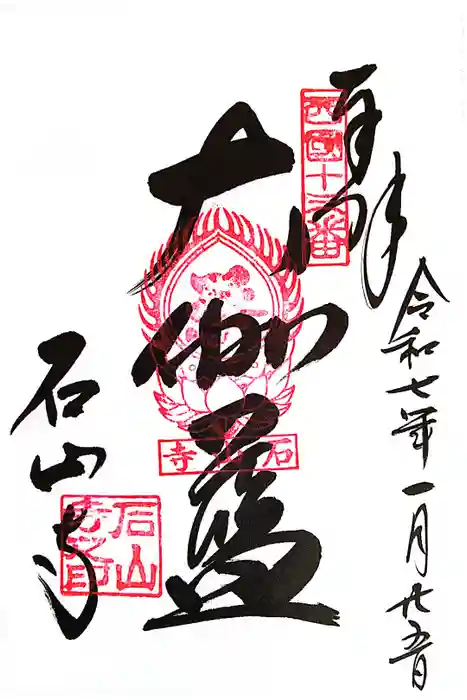 奉拝
西國十三番
令和七年一月廿五日
大伽藍
石山寺
石山寺
石山寺之印